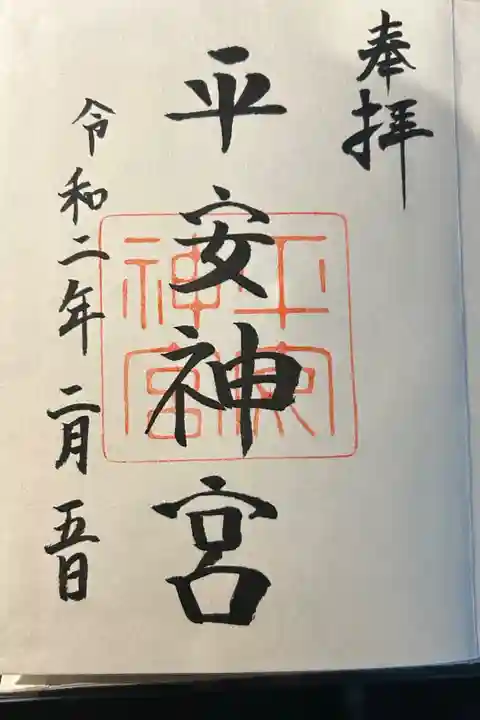 奉拝
平安神宮
令和二年二月五日
平安神宮